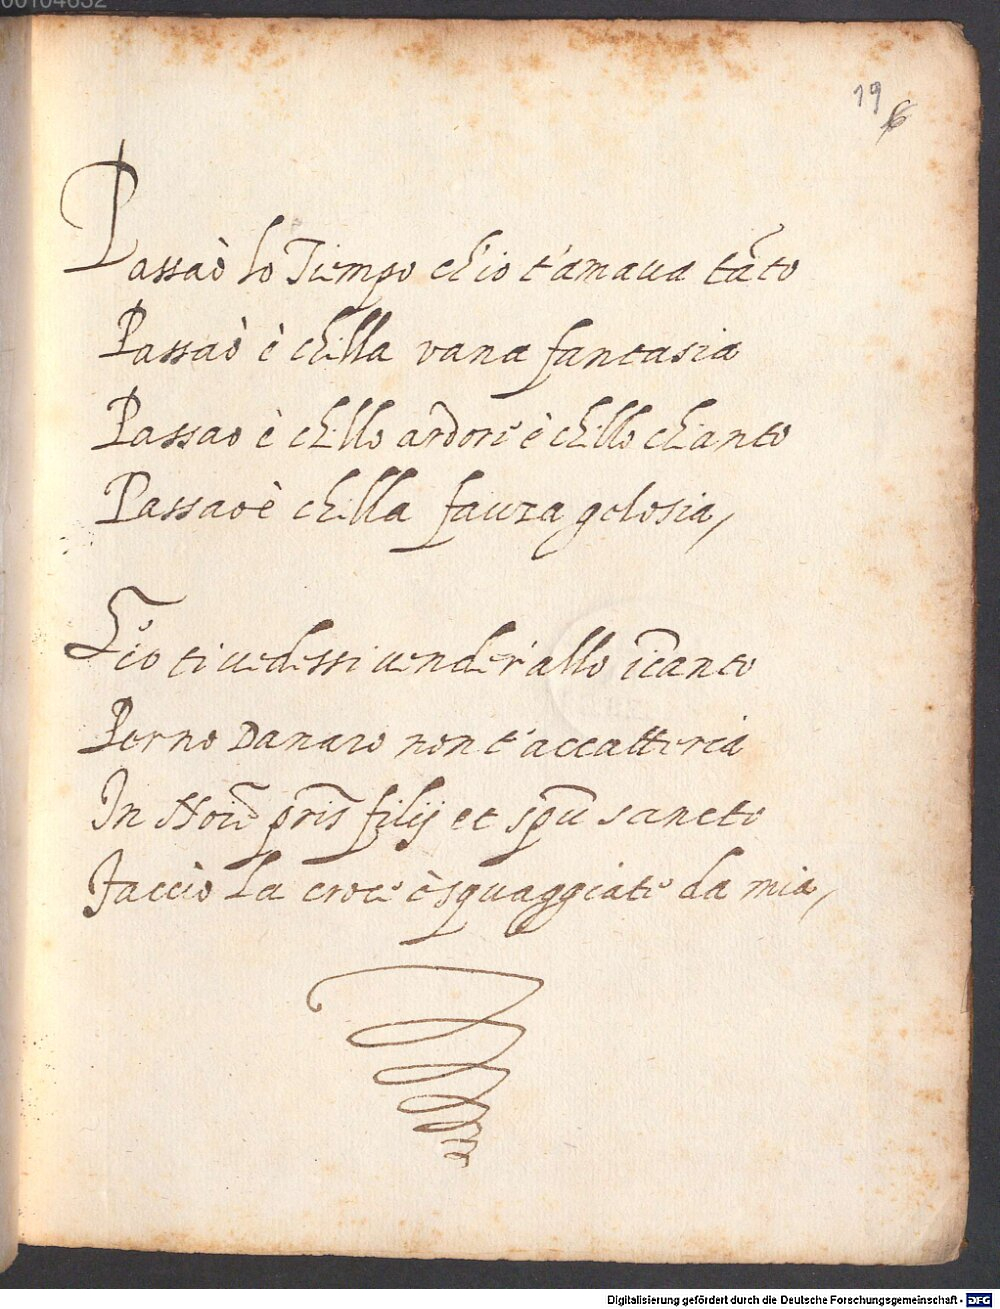 00104632
19 6
Passaò lo Tiempo ch'io t'amaua tãto
Passaò è chilla vana fantasia
Passao è chillo ardore è chillo chianto
Passaoè chilla fauza gelosia,
S'io ti uedessi uender' allo ĩcanto
Per no Danaro non t'accatteria
In Noiẽ pr̃is filij et sp̃u sancto
Faccio la croce è squaggiate da mia,
Digitalisierung gefördert durch die Deutsche Forschungsgemeinschaft - DFG